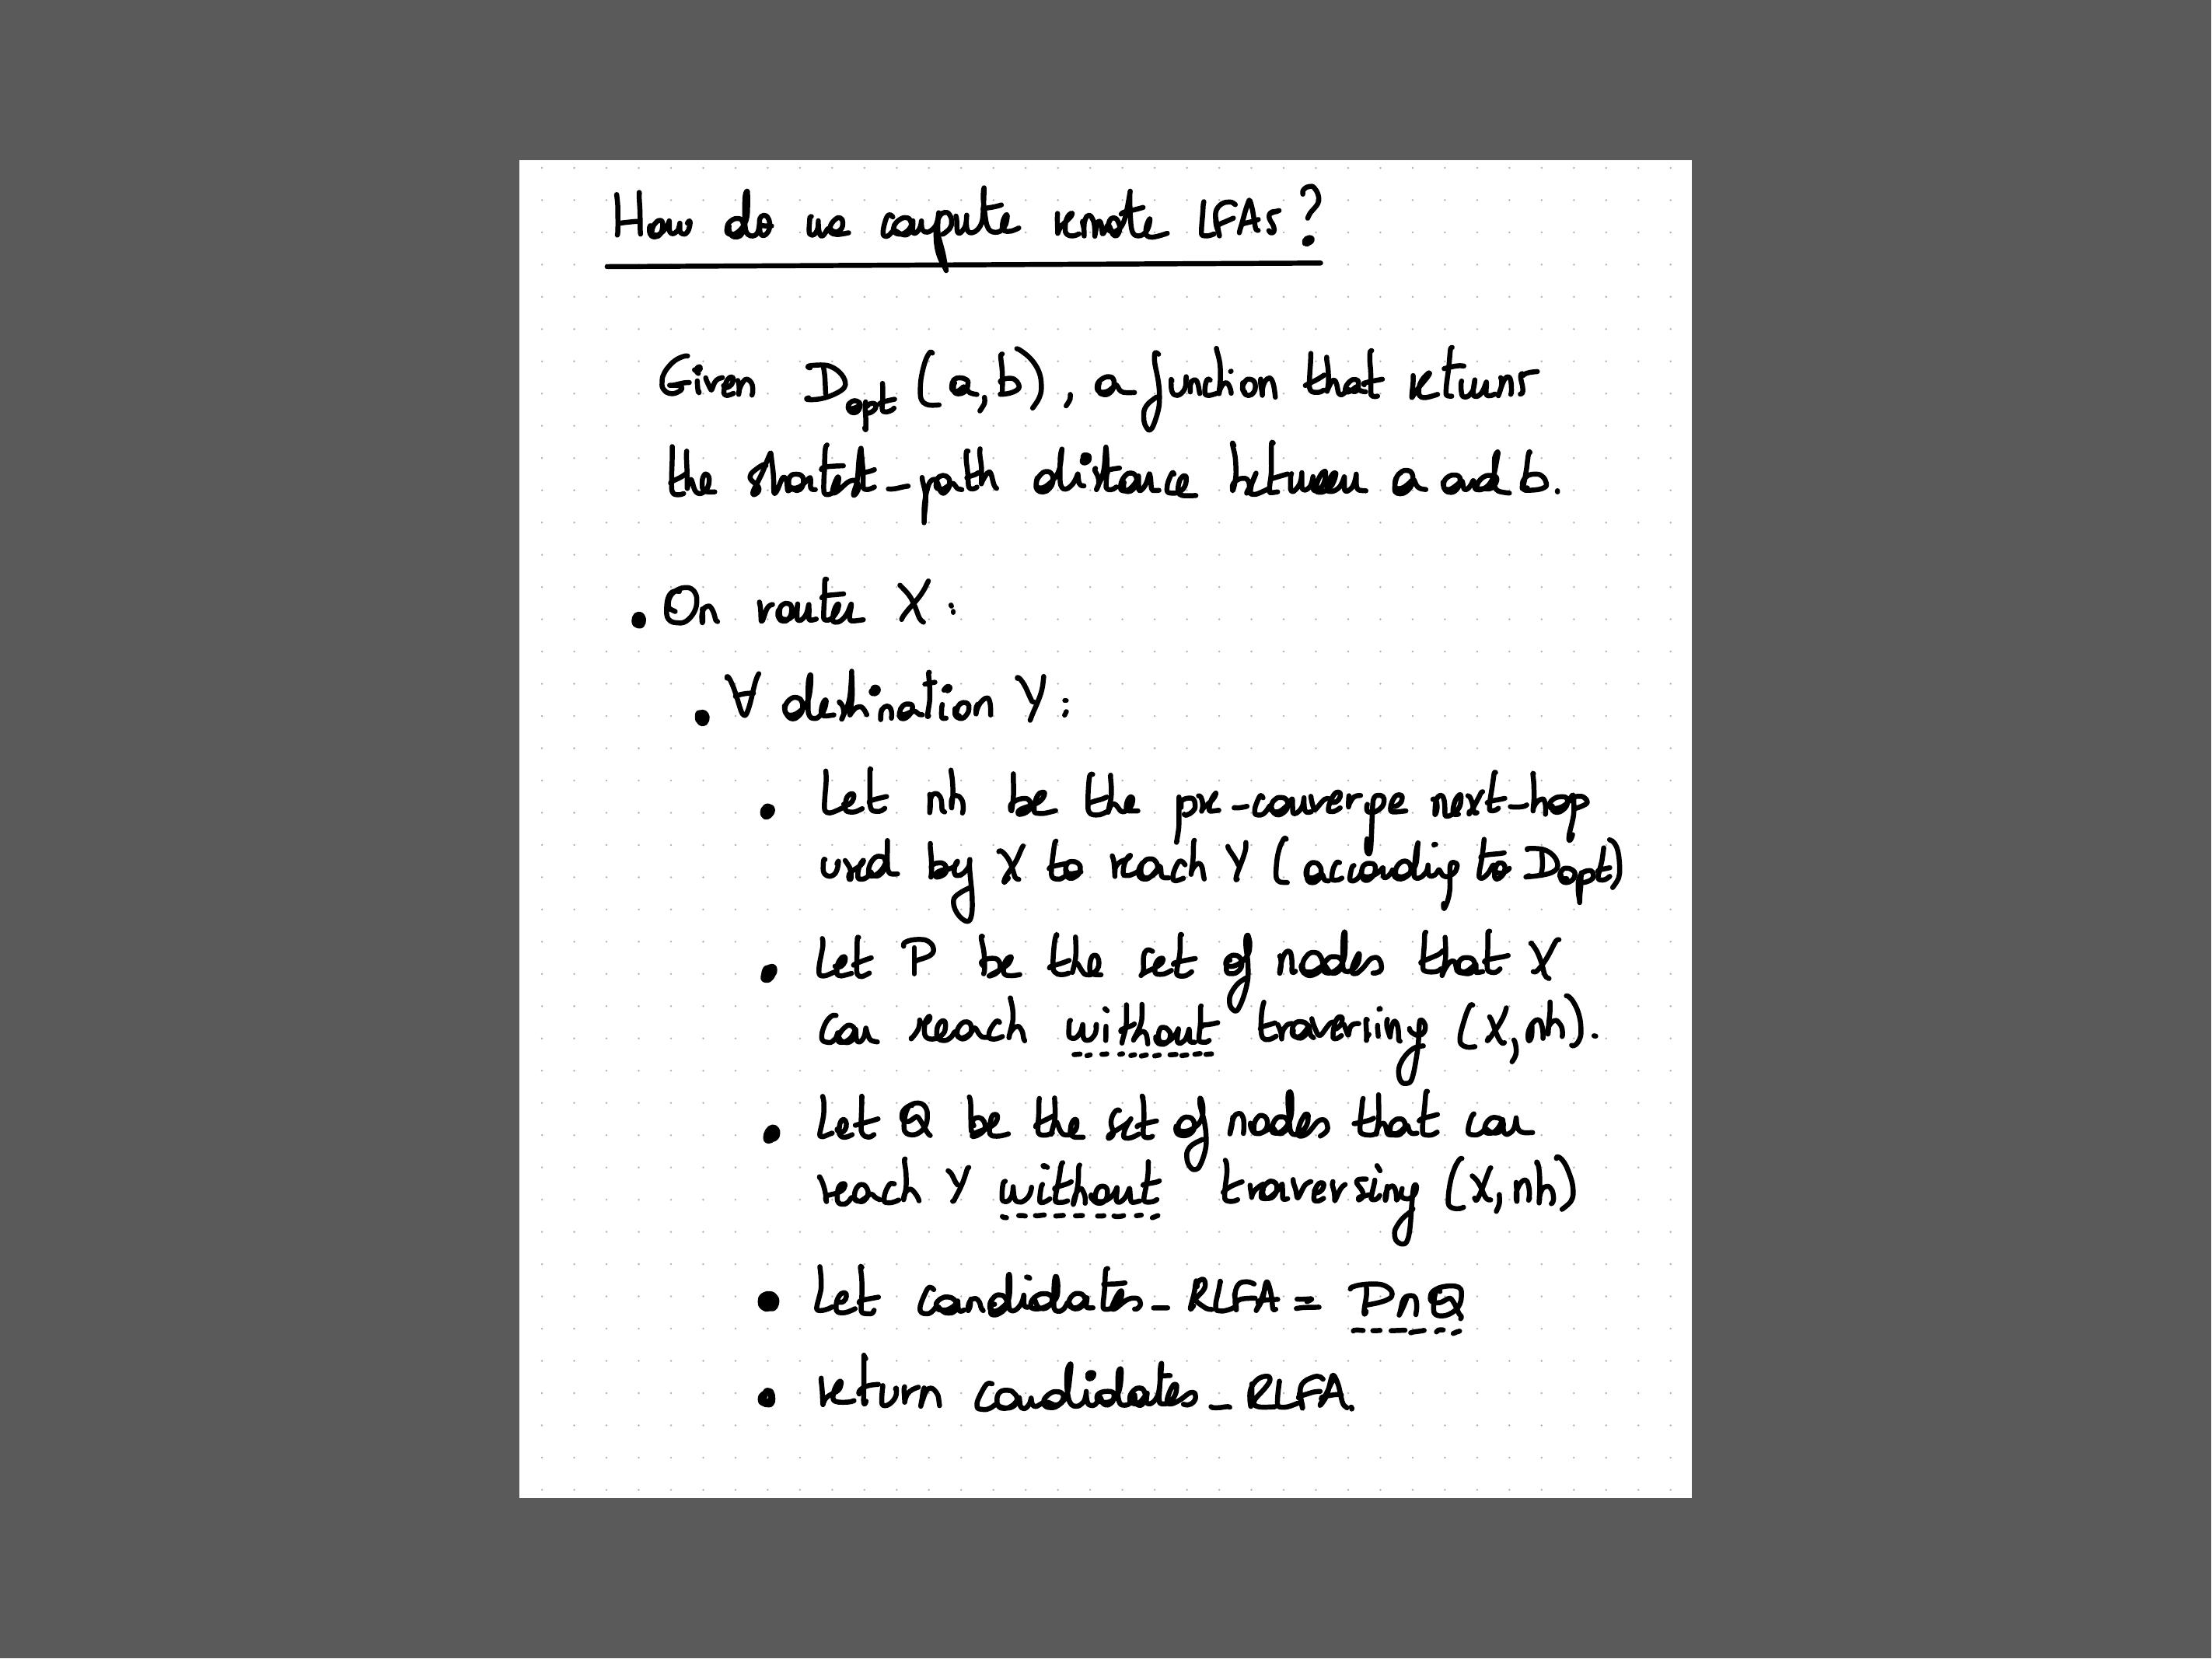 How do we compute remote LFAs?
Given Dopt (a,b), a function that returns
the shortest-path distance between a and b.
• On router X:
• ∀ destination Y:
• Let nh be the pre-converge next-hop
used by X to reach Y (according to Dopt)
• Let P be the set of nodes that X
can reach without traversing (X,nh).
• Let Q be the set of nodes that can
reach Y without traversing (X,nh)
• Let candidates_RLFA = P∩Q
• return candidates_RLFA